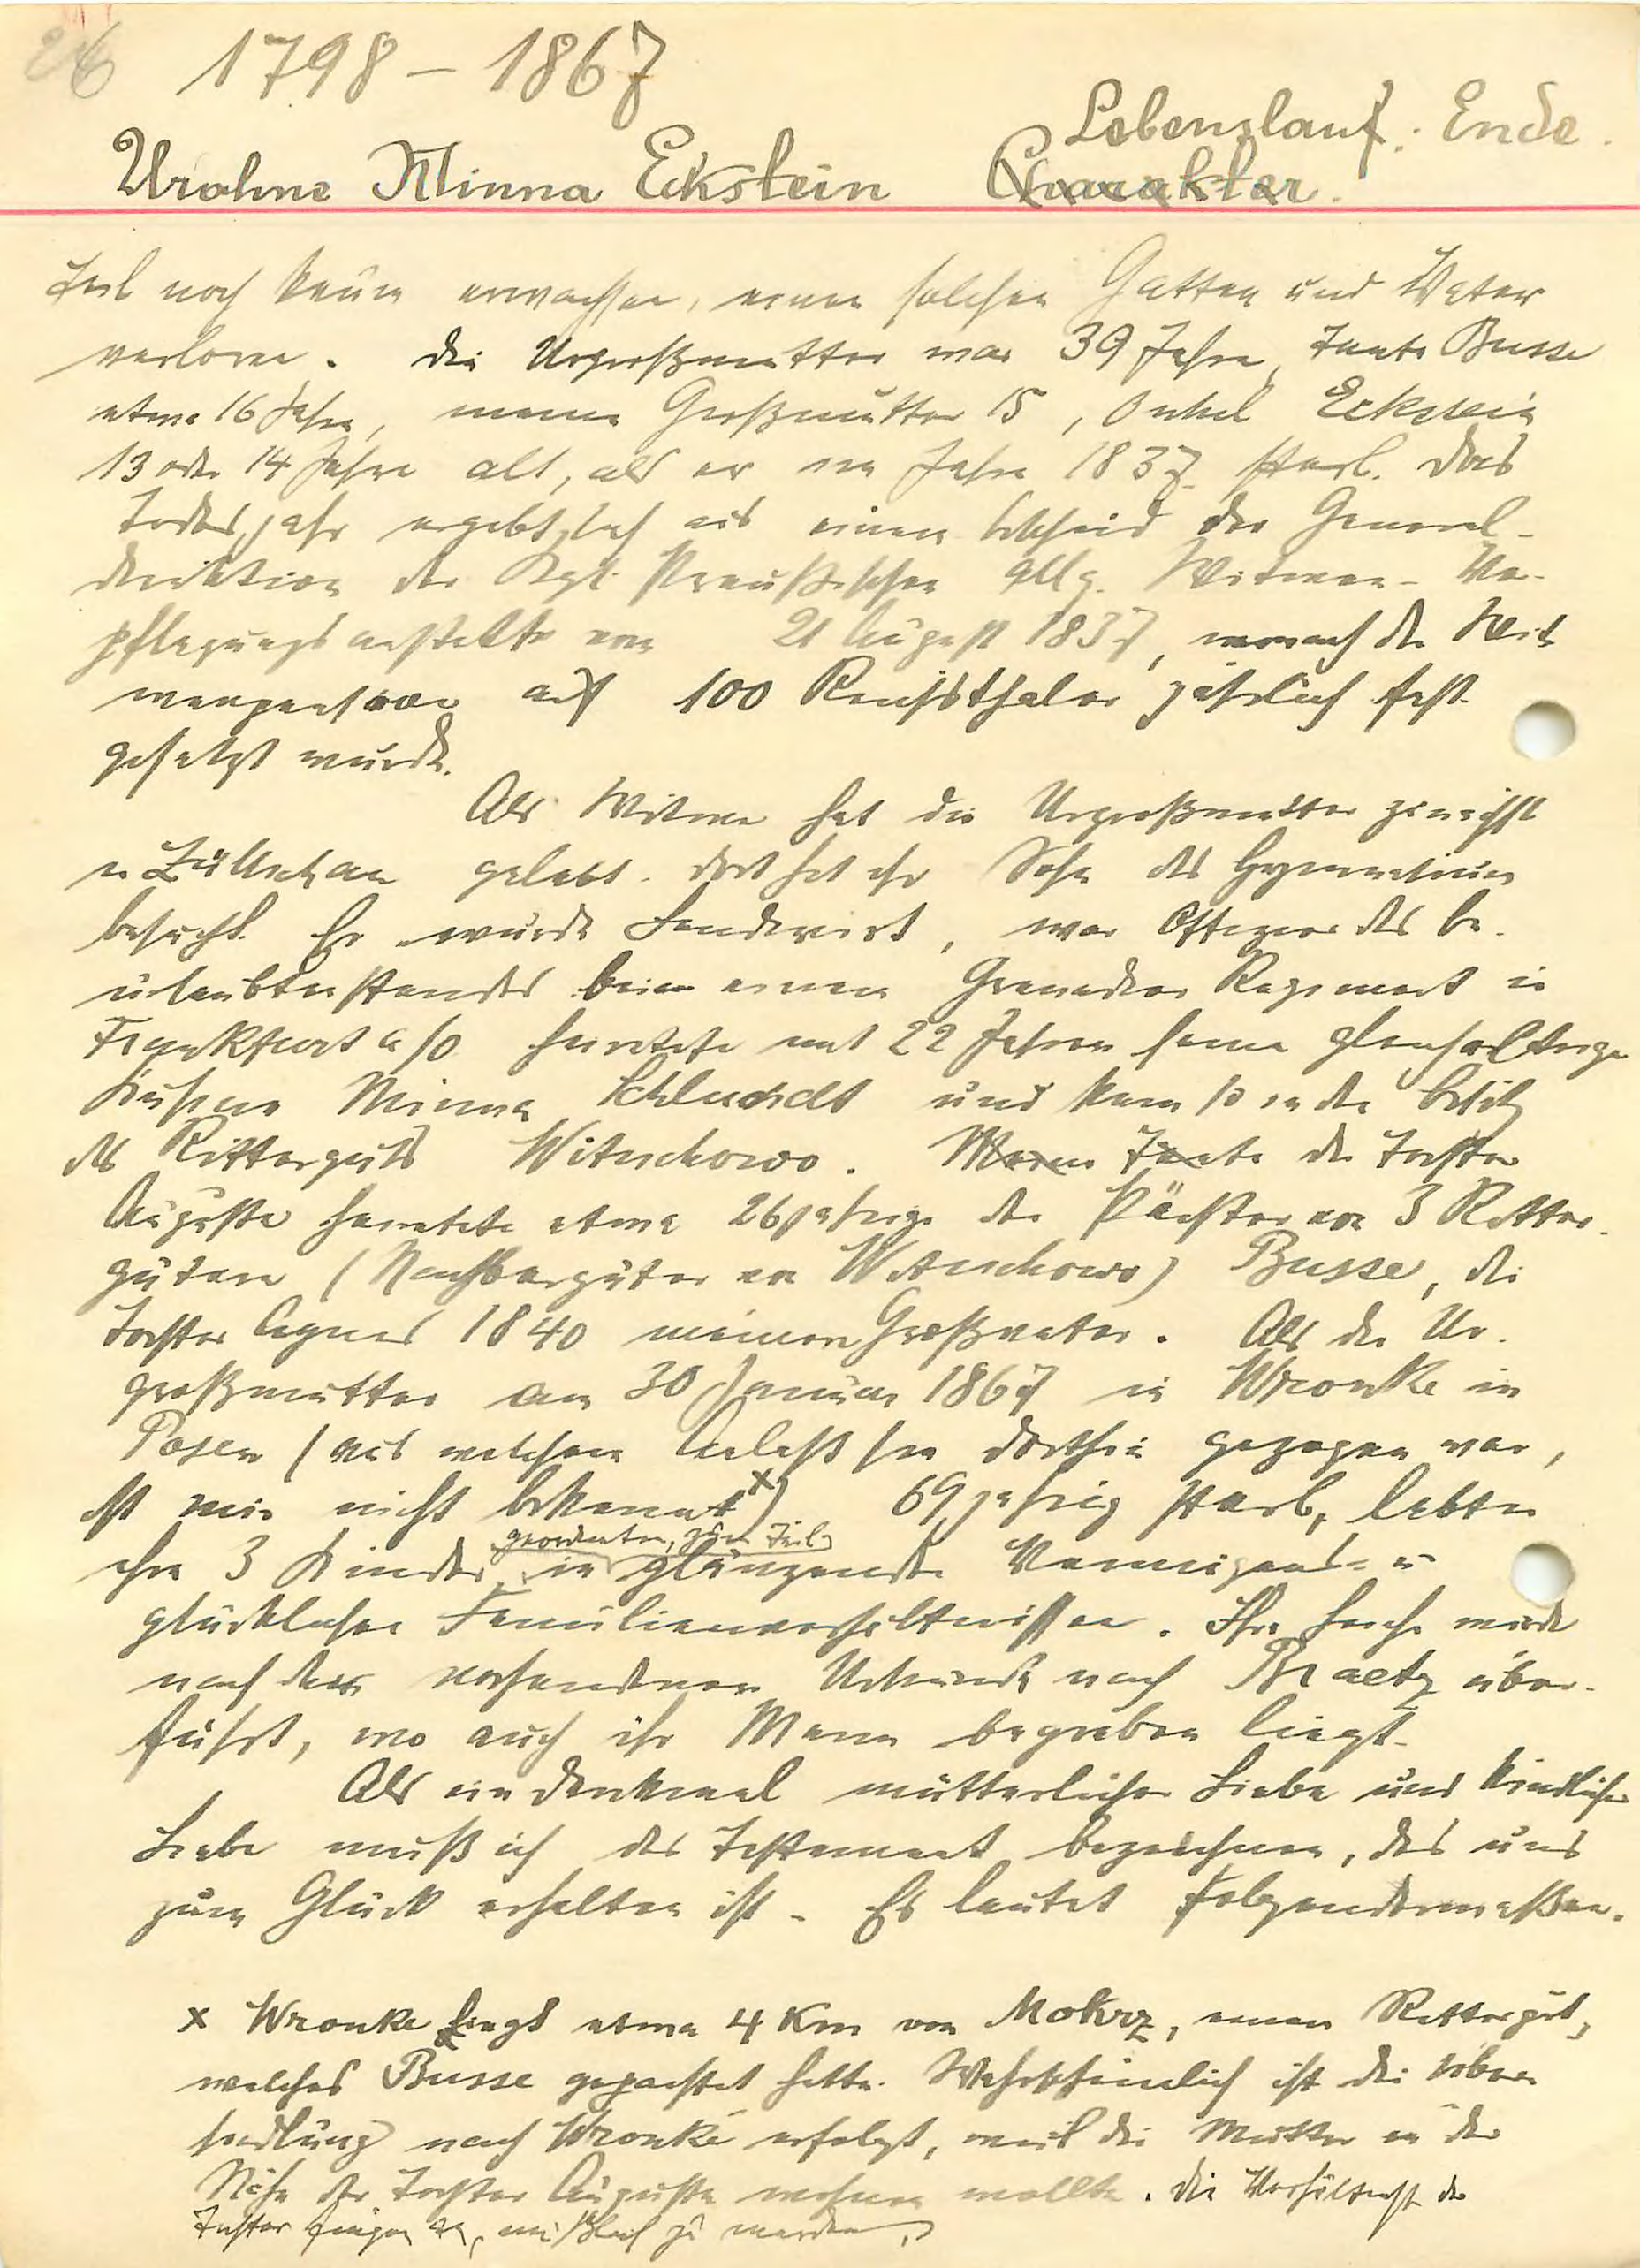 26 1798 – 1867
Lebenslauf. Ende.
Urahne Minna Eckstein Charakter.
Teil noch kaum erwachsen, einen solchen Gatten und Vater
verloren. Die Urgroßmutter war 39 Jahre, Tante Busse
etwa 16 Jahre, meine Großmutter 15, Onkel Eckstein
13 oder 14 Jahre alt, als er im Jahre 1837 starb. Das
Todesjahr ergibt sich aus einem Bescheid der General-
direktion der Kgl. Preußischen Allg. Witwen-Ver-
pflegungsanstalt vom 21 August 1837, wonach die Wit-
wenpension auf 100 Reichsthaler jährlich fest-
gesetzt wurde.
Als Witwe hat die Urgroßmutter zunächst
in Züllichau gelebt. Dort hat ihr Sohn das Gymnasium
besucht. Er wurde Landwirt, war Offizier des Be-
urlaubtenstandes beim einem Grenadier Regiment in
Frankfurt a/O heiratete mit 22 Jahren seine gleichaltrige
Kusine Minna Schluedt und kam so in den Besitz
des Ritterguts Wituchowo. Meine Tante die Tochter
Auguste heiratete etwa 26jährig den Pächter von 3 Ritter-
gütern (Nachbargüter von Wituchowo) Busse, die
Tochter Agnes 1840 meinen Großvater. Als die Ur-
großmutter am 30 Januar 1867 in Wronke in
Posen (aus welchem Anlaß sie dorthin gezogen war,
ist mir nicht bekannt x) 69jährig starb, lebten
geordneten, zum Teil
ihre 3 Kinder in glänzenden Vermögens- u
glücklichen Familienverhältnissen. Ihre Leiche wurde
nach der vorhandenen Urkunde nach Braetz über-
führt, wo auch ihr Mann begraben liegt.
Als ein Denkmal mütterlicher Liebe und kindlicher
Liebe muß ich das Testament bezeichnen, das uns
zum Glück erhalten ist. Es lautet folgendermaßen.
x Wronke liegt etwa 4 Km von Mokrz, einem Rittergut,
welches Busse gepachtet hatte. Wahrscheinlich ist die Über-
siedlung nach Wronke erfolgt, weil die Mutter in der
Nähe der Tochter Auguste wohnen wollte. Die Verhältnisse der
Tochter fingen an, mißlich zu werden.